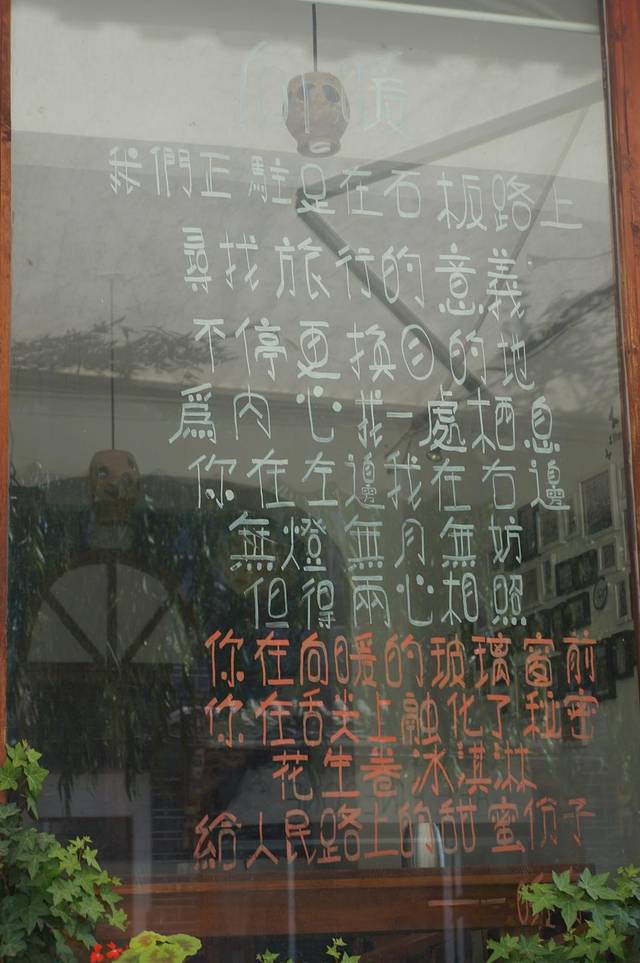 向暖
我們正駐足在石板路上
尋找旅行的意義
不停更換目的地
為內心找一處栖息
你在左邊我在右邊
無燈無月無妨
但得兩心相照
你在向暖的玻璃窗前
你在舌尖上融化了秘密
花生卷冰淇淋
給人民路上的甜蜜份子